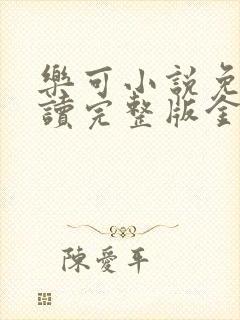 樂可小說免
讀完整版全
陳愛平